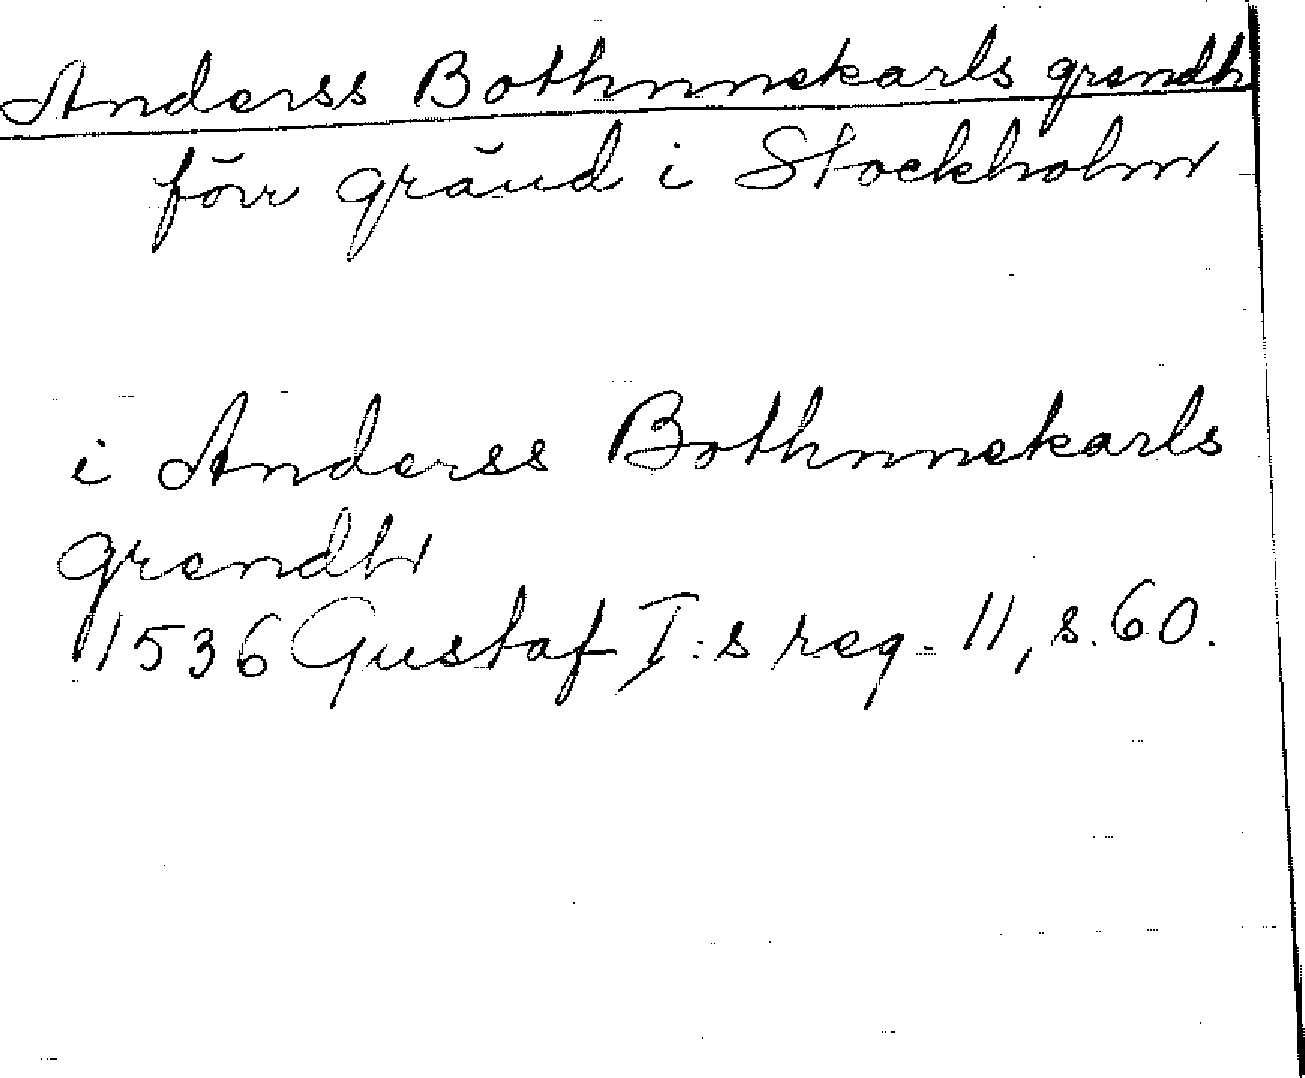 Anderss Bothnnekarls grendh
förr gränd i Stockholm
i Anderss Bothnnekarls
grendh
1536 Gustaf I:s reg. 11, s. 60.